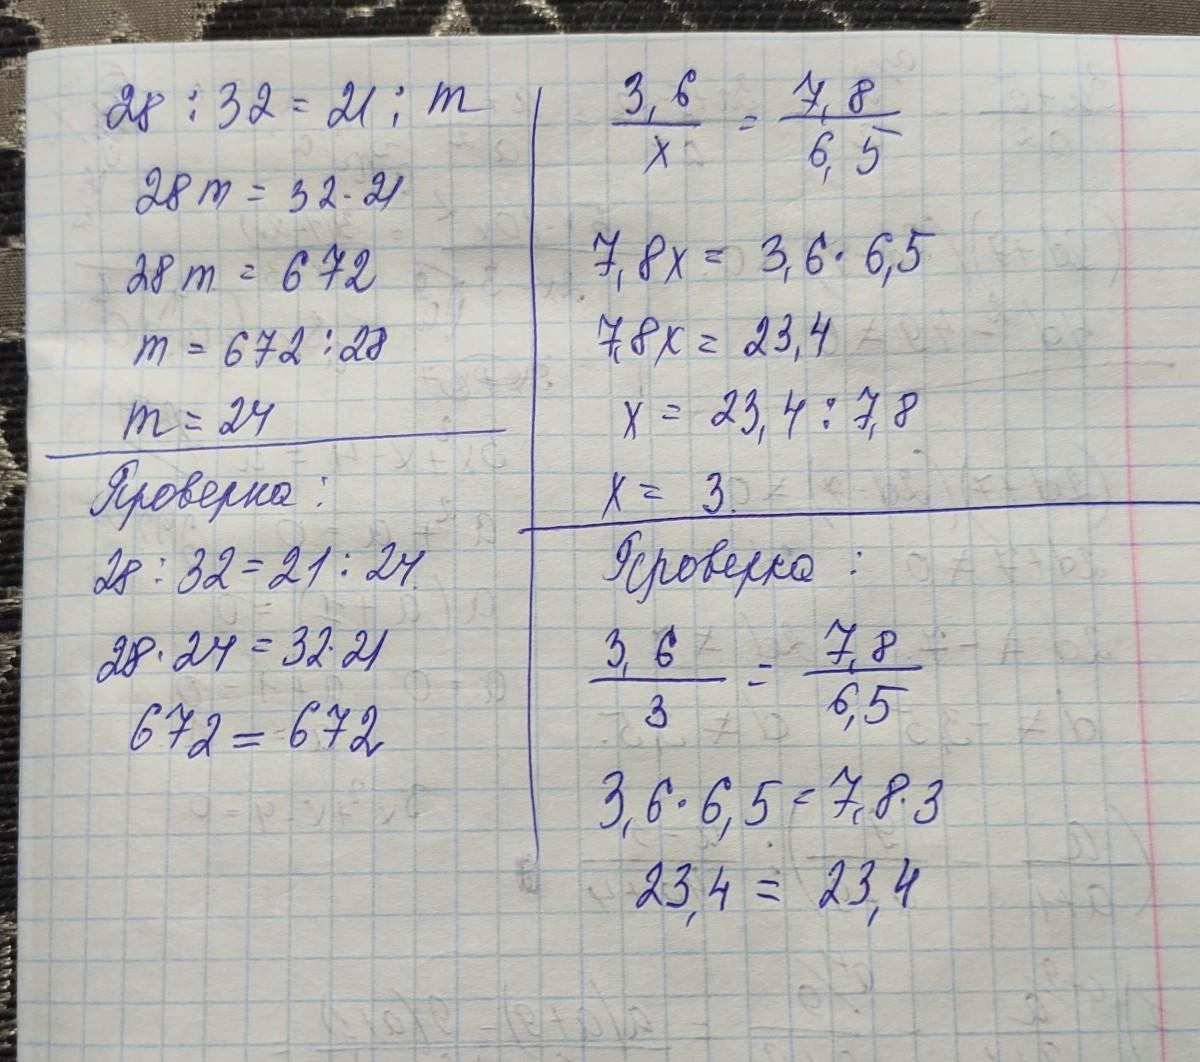 28 : 32 = 21 : m
28m = 32 · 21
28m = 672
m = 672 : 28
m = 24
Проверка :
28 : 32 = 21 : 24
28 · 24 = 32 · 21
672 = 672
3,6 / x = 7,8 / 6,5
7,8x = 3,6 · 6,5
7,8x = 23,4
x = 23,4 : 7,8
x = 3.
Проверка :
3,6 / 3 = 7,8 / 6,5
3,6 · 6,5 = 7,8 · 3
23,4 = 23,4